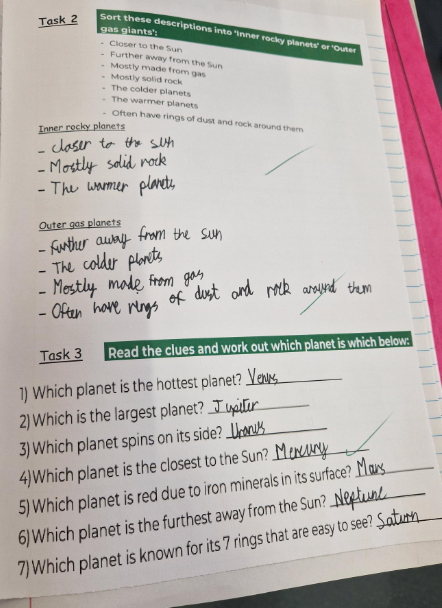 Task 2
Sort these descriptions into 'Inner rocky planets' or 'Outer
gas giants':
- Closer to the Sun
- Further away from the Sun
- Mostly made from gas
- Mostly solid rock
- The colder planets
- The warmer planets
- Often have rings of dust and rock around them
Inner rocky planets
- closer to the sun
- Mostly solid rock
- The warmer planets
Outer gas planets
- further away from the sun
- The colder planets
- Mostly made from gas
- Often have rings of dust and rock around them
Task 3
Read the clues and work out which planet is which below:
1) Which planet is the hottest planet? Venus
2) Which is the largest planet? Jupiter
3) Which planet spins on its side? Uranus
4) Which planet is the closest to the Sun? Mercury
5) Which planet is red due to iron minerals in its surface? Mars
6) Which planet is the furthest away from the Sun? Neptune
7) Which planet is known for its 7 rings that are easy to see? Saturn